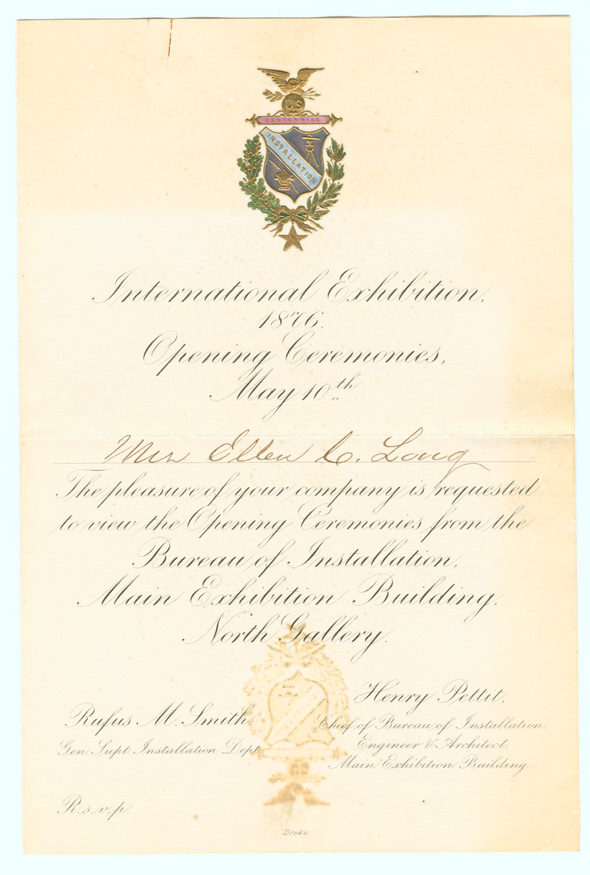 US
CENTENNIAL
INSTALLATION
International Exhibition,
1876.
Opening Ceremonies,
May 10th
Mrs Ellen C. Long
The pleasure of your company is requested
to view the Opening Ceremonies from the
Bureau of Installation,
Main Exhibition Building,
North Gallery.
Rufus M. Smith,
Gen. Supt. Installation Dept.
Henry Pettit,
Chief of Bureau of Installation,
Engineer & Architect,
Main Exhibition Building.
R.s.v.p.
Dreka